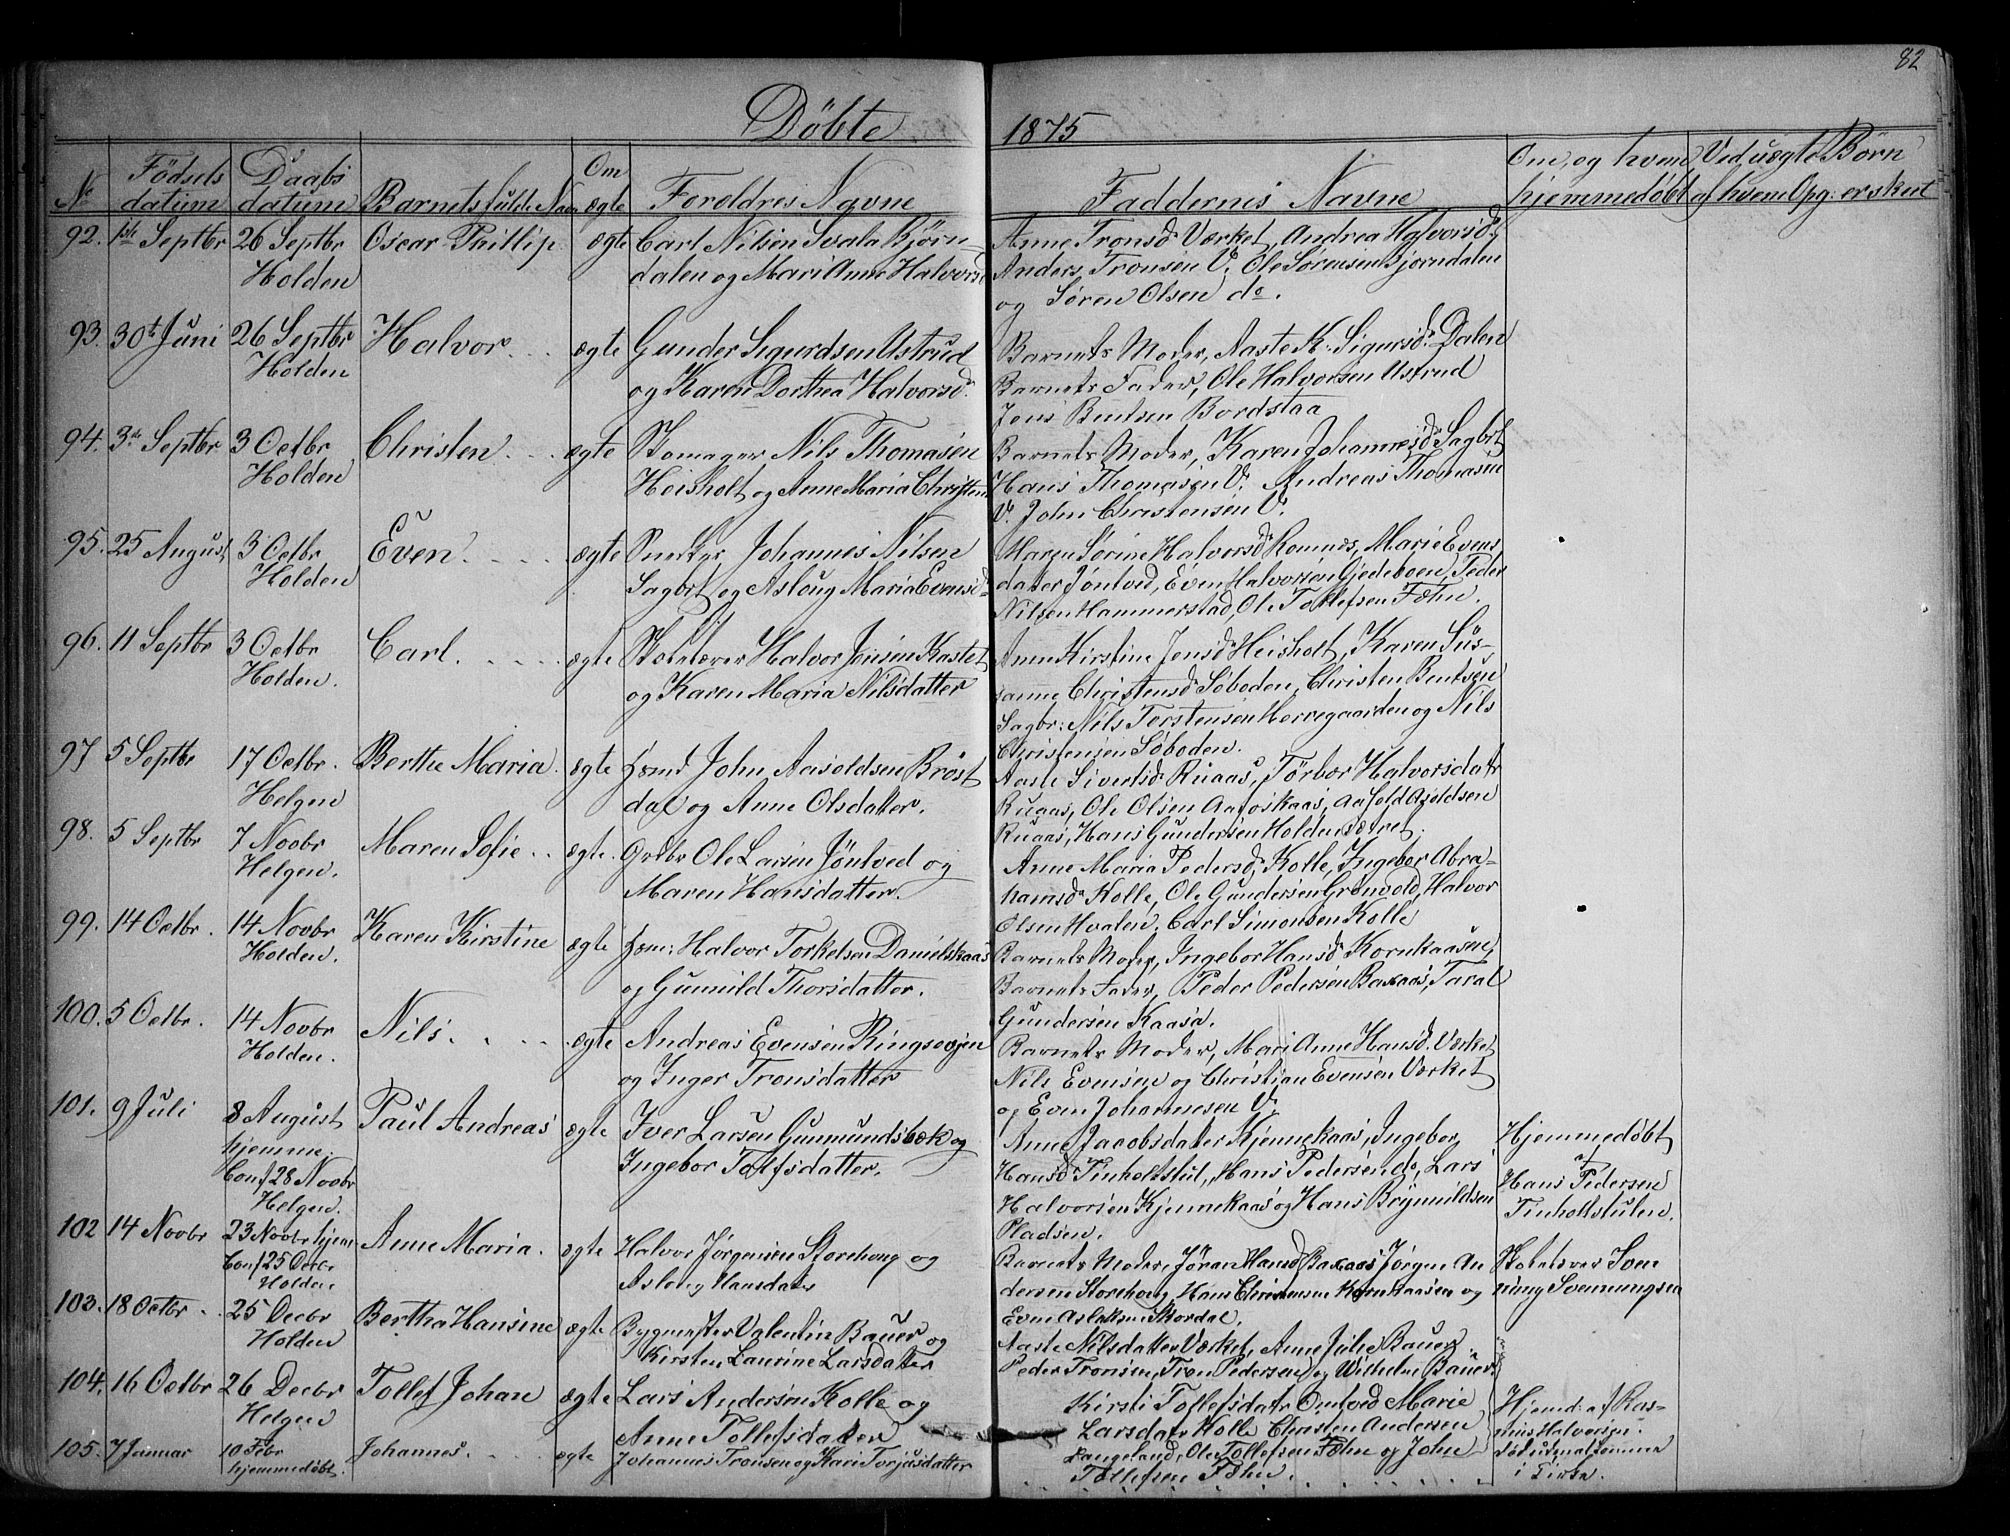 82
Döbte 1875
No
Födsels datum
Daabs datum
Barnets fulde Navn
Om ægte
Foreldres Navne
Faddernes Navne
Om, og hvem hjemmedøbt
Ved uægte Børn af hvem Opg: er skut
92. 1ste Septbr 26 Septbr Oscar Phillip ægte Carl Nilsen Svala Bjørn-
Holden dalen og Mari Anne Halvorsd
Anne Tronsd Værket, Andrea Halvorsd.
Anders Tronsen V. Ole Sørensen Bjørndalen
og Søren Olsen do.
93. 30t Juni 26 Septbr Halvor ægte Gunder Sigurdsen Ustrud
Holden og Karen Dorthea Halvorsd.
Barnets Moder, Aaste K. Sigursd. Dalen
Barnets Fader, Ole Halvorsen Ustrud
Jens Bentsen Bordstaa
94. 3de Septbr 3 Octbr Christen ægte Skomager Nils Thomasen
Holden Heisholt og Anne Maria Christens
Barnets Moder, Karen Johannesd Sagbrt
Hans Thomasen V. Andreas Thomasen
V. John Christensen V.
95. 25 August 3 Octbr Even ægte Sneeker Johannes Nilsen
Holden Sagbrt og Aslaug Maria Evensd
Maren Sørine Halvorsd Romnes, Marie Evens
dater Jöntved, Even Halvorsen Gjedeboen, Peder
Nilsen Hammerstad, Ole Tollefsen Fæhn.
96. 11 Septbr 3 Octbr Carl ægte Skolelærer Halvor Jensen Kastet
Holden. og Karen Maria Nilsdatter
Anne Kirstine Jensd Heisholt, Karen Sus-
anne Christensd Søboden, Christen Bentsen
Sagbr: Nils Terstensen Morregaarden og Nils
Christensen Søboden.
97 5 Septbr 17 Octbr. Berthe Maria. ægte John Aasoldsen Bröst
Helgen dal og Anne Olsdatter.
Aaste Sivertsd Ruaas, Törbør Halvorsdatr
Ruaas, Ole Olsen Aafoskaas,
Ruaas, Hans Gundersen Holden
98. 5 Septbr 7 Novbr Maren Sofie ægte Grdbr Ole Larsen Jöntved og
Helgen. Maren Hansdatter.
Anne Maria Pedersd Kolle, Ingebor Abra-
hamsd Kolle, Ole Gundersen Grönvold, Halvor
Olsen Hvalen, Carl Simonsen Kolle
99. 14 Octbr. 14 Novbr Karen Kirstine ægte Halvor Torkelsen Danielskaas
Holden. og Gunnild Thorsdatter.
Barnets Moder, Ingebor Hansd Kornkaasen,
Barnets Fader, Peder Pedersen Baxaas, Taral
Gundersen Kaasa.
100. 5 Octbr. 14 Novbr Nils ægte Andreas Evensen Ringsevjen
Holden. og Inger Tronsdatter
Barnets Moder, Mari Anne Hansd. Værket
Nils Evensen og Christian Evensen Værket
og Even Johannesen V.
101. 9 Juli 8 August Paul Andreas ægte Iver Larsen Gunmundsbæk og
hjemme. Ingebor Tolfsdatter.
Conf 28 Novbr
Helgen.
Anne Jacobsdater Kjennekaas, Ingebor
Hansd Tinholtstul, Hans Pedersen do, Lars
Halvorsen Kjennekaas og Hans Brynnildsen
Pladsen.
Hjemmedøbt
af
Hans Pedersen
Tinholtstulen.
102 14 Novbr 23 Novbr hjem Anne Maria. ægte Halvor Jørgensen Storehoug og
Conf 25 Decbr Aslaug Hansdatr
Holden
Barnets Moder, Jöran Hansd Baxaas Jørgen An
dersen Storehoug, Hans Christensen Kornkaasen og
Even Aslaksen Skordal.
Skolelærer Sven
ning Svenningsen
103. 18 Octbr 25 Decbr Bertha Hansine ægte Bygmester Valentin Bauer og
Holden Kirsten Laurine Larsdatter
Aaste Nilsdatter Værket, Anne Julie Bauer
Peder Tronsen, Tron Pedersen og Wilhelm Bauer
104. 16 Octbr 26 Decbr Tollef Johan ægte Lars Andersen Kolle og
Helgen Anne Tollefsdater
Kirsti Tollefsdatr Omtved Marie
Larsdatr Kolle Christen Andersen
Langeland, Ole Tollefsen Fæhn og John
Tollefsen Fæhn.
Hjemd: af Ras-
mus Halvorsen.
105. 7 Januar 10 Febr Johannes. ægte Johannes Tronsen og Kari Torjusdatter
hjemmedøbt.